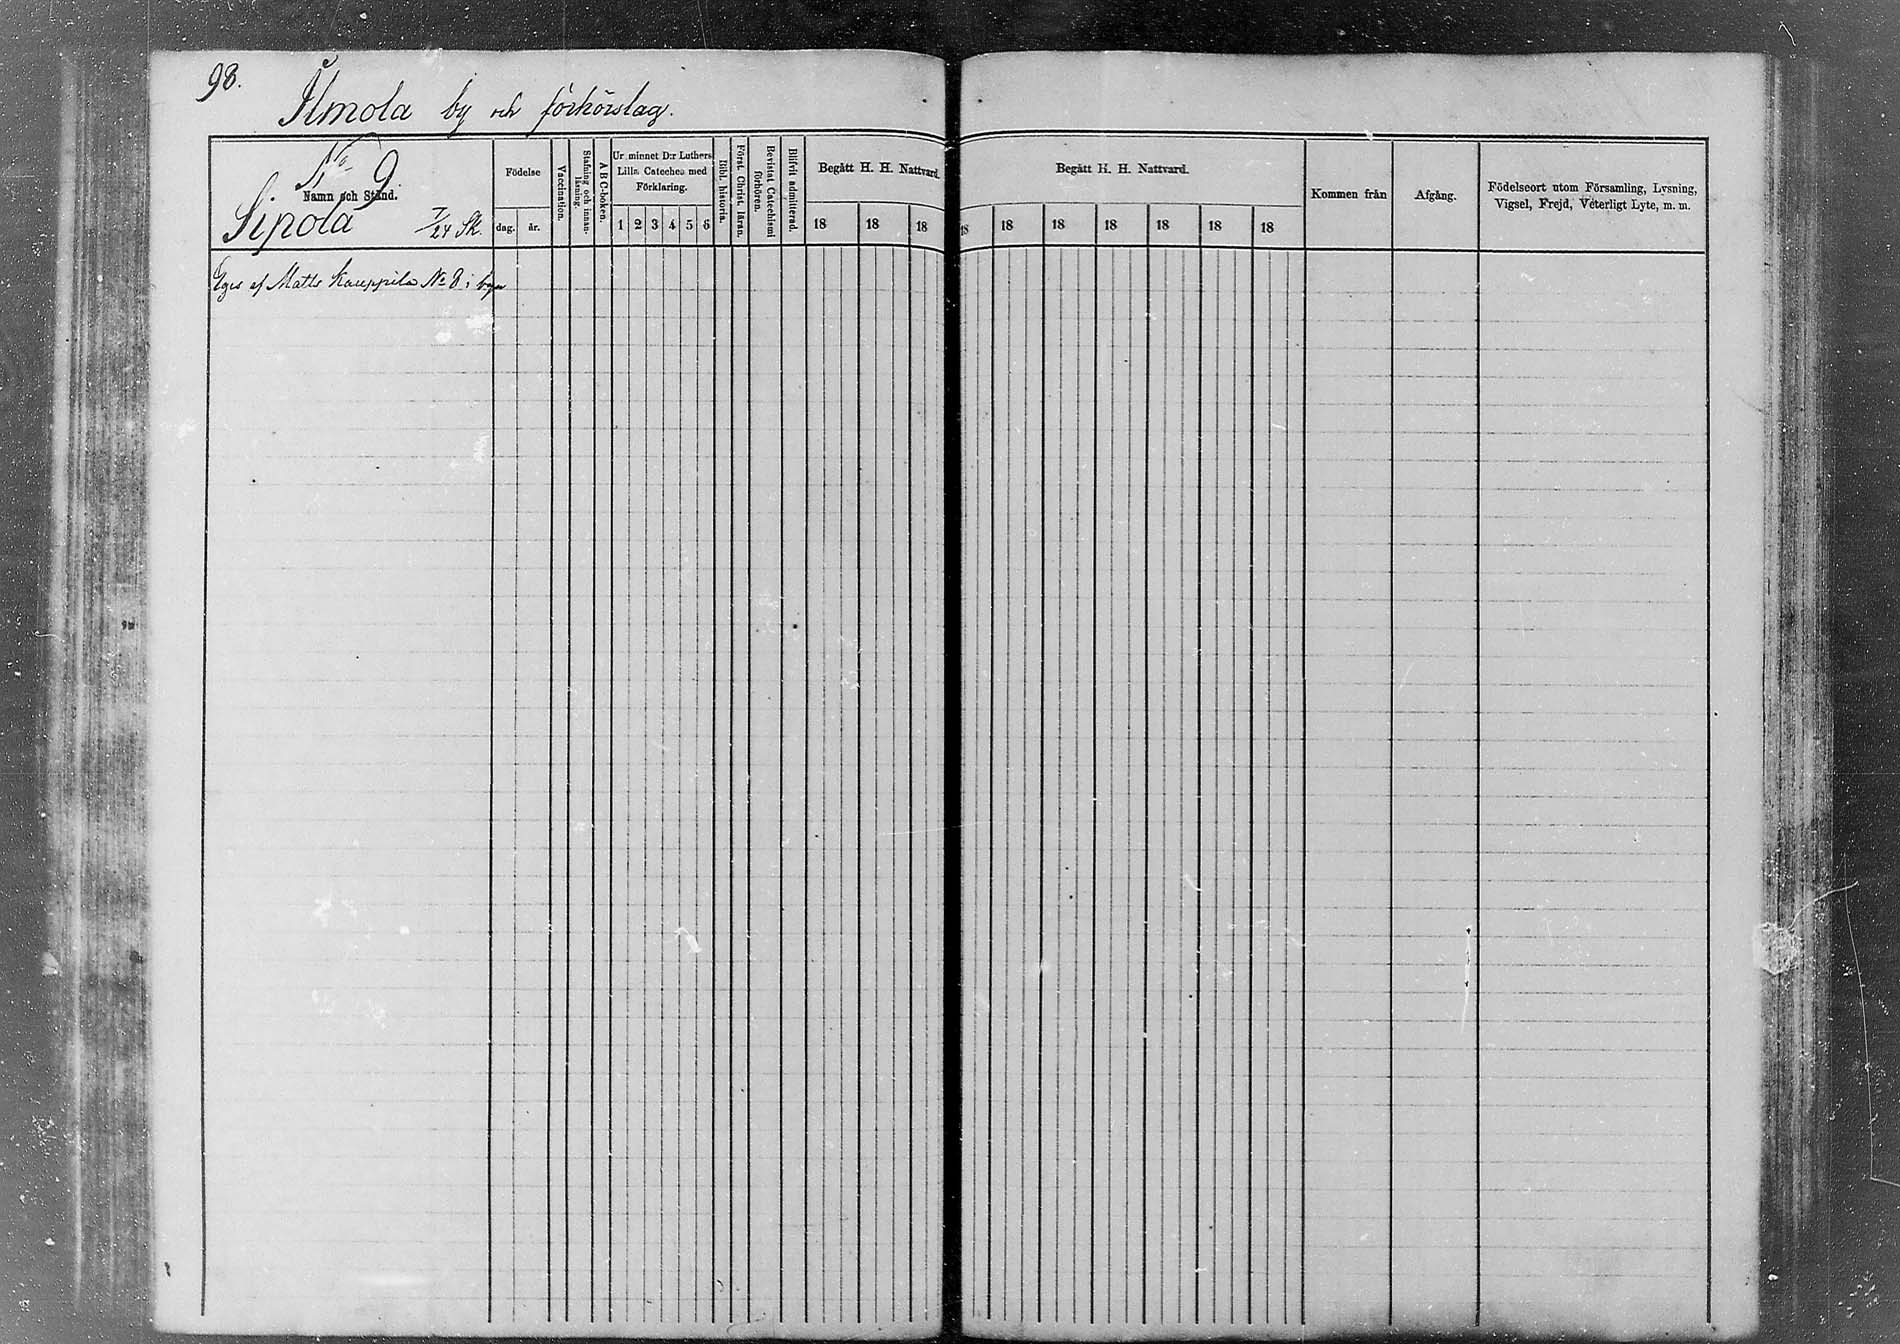 98.
Ilmola by och förhörslag.
No 9
Namn och Stånd.
Sipola 7/24 Sk.
Födelse
dag. år.
Vaccination.
Stafning och innanläsning.
A B C-boken.
Ur minnet D:r Luthers
Lilla Cateches med
Förklaring.
1 2 3 4 5 6
Bibl. historia.
Först. Christ. läran.
Bevistat Catechismi förhören.
Blifvit admitterad.
Begått H. H. Nattvard.
18 18 18
Begått H. H. Nattvard.
18 18 18 18 18 18 18
Kommen från
Afgång.
Födelseort utom Församling, Lysning,
Vigsel, Frejd, Veterligt Lyte, m. m.
Eges af Matts Kauppila No 8 i byn